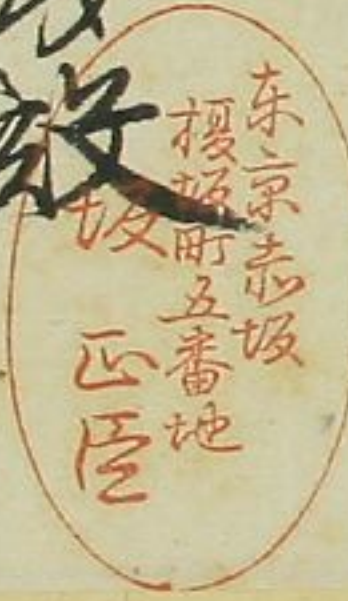 東京赤坂
榎坂町五番地
坂正臣